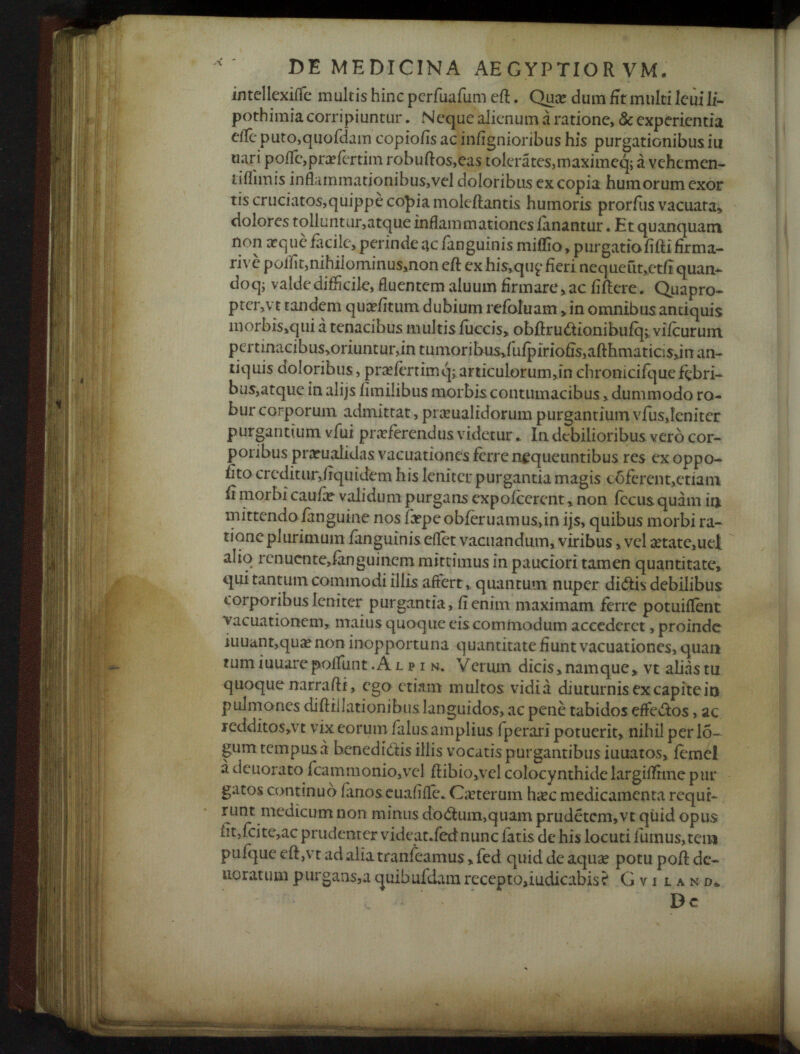 DE MEDICINA AEGYPTIORVM.
intellexiſſe multis hinc perſuaſum eſt. Quæ dum fit multi leui li-
pothimia corripiuntur. Neque alienum à ratione, & experientia
eſſe puto,quoſdam copioſis ac inſignioribus his purgationibus iu
uari poſſe,præſertim robuſtos,eas tolerãtes,maximeq; à vehemen-
tiſſimis inflammationibus,vel doloribus ex copia humorum exor
tis cruciatos,quippè copia moleſtantis humoris prorſus vacuata,
dolores tolluntur,atque inflammationes ſanantur. Et quanquam
non æquè facilè, perinde ac ſanguinis miſſio, purgatio ſiſti firma-
rivè poſſit,nihilominus,non eſt ex his,quę fieri nequeũt,etſi quan-
doq; valde difficile, fluentem aluum firmare, ac ſiſtere. Quapro-
pter,vt tandem quæſitum dubium reſoluam, in omnibus antiquis
morbis,qui à tenacibus multis ſuccis, obſtructionibuſq; viſcurum
pertinacibus,oriuntur,in tumoribus,ſuſpirioſis,aſthmaticis,in an-
tiquis doloribus, præſertimq; articulorum,in chronicifque febri-
bus,atque in alijs ſimilibus morbis contumacibus, dummodo ro-
bur corporum admittat, præualidorum purgantium vſus,leniter
purgantium vſui præferendus videtur. In debilioribus verò cor-
poribus præualidas vacuationes ferre nequeuntibus res ex oppo-
ſito creditur,ſiquidem his leniter purgantia magis cõferent,etiam
ſi morbi cauſæ validum purgans expoſcerent, non ſecus quàm in
mittendo ſanguine nos ſæpe obſeruamus,in ijs, quibus morbi ra-
tione plurimum ſanguinis eſſet vacuandum, viribus, vel ætate,uel
alio renuente,ſanguinem mittimus in pauciori tamen quantitate,
qui tantum commodi illis affert, quantum nuper dictis debilibus
corporibus leniter purgantia, ſi enim maximam ferre potuiſſent
vacuationem, maius quoque eis commodum accederet, proinde
iuuant,quæ non inopportuna quantitate fiunt vacuationes, quan
tum iuuare poſſunt. ALPIN. Verum dicis, namque, vt aliàs tu
quoque narraſti, ego etiam multos vidi à diuturnis ex capite in
pulmones diſtillationibus languidos, ac penè tabidos effectos, ac
redditos,vt vix eorum ſalus amplius ſperari potuerit, nihil per lõ-
gum tempus à benedictis illis vocatis purgantibus iuuatos, ſemel
à deuorato ſcammonio,vel ſtibio,vel colocynthide largiſſimè pur
gatos continuò ſanos euaſiſſe. Cæterum hæc medicamenta requi-
runt medicum non minus doctum,quam prudẽtem,vt quid opus
ſit,ſcite,ac prudenter videat.ſed nunc ſatis de his locuti ſumus,tem
puſque eſt,vt ad alia tranſeamus, ſed quid de aquæ potu poſt de-
uoratum purgans,a quibuſdam recepto,iudicabis? GVILAND.
De